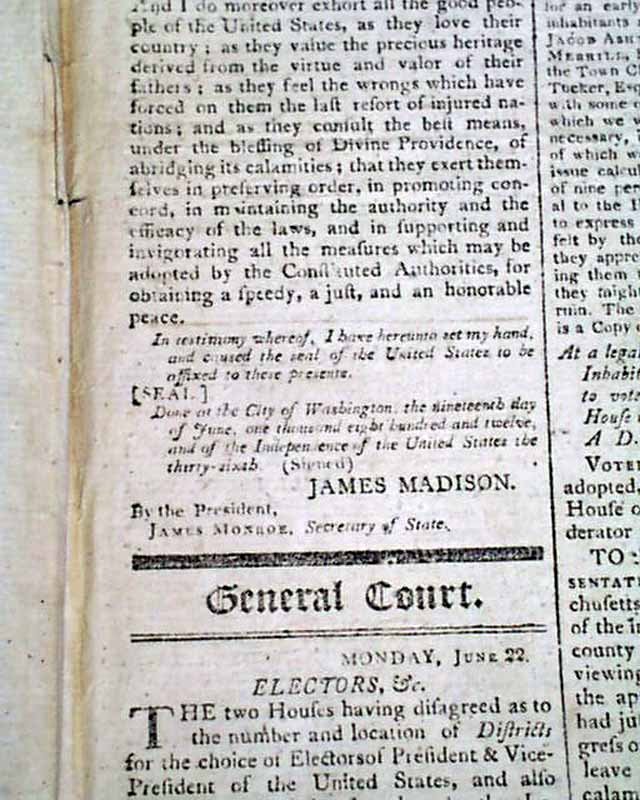 And I do moreover exhort all the good peo-
ple of the United States, as they love their
country; as they value the precious heritage
derived from the virtue and valor of their
fathers; as they feel the wrongs which have
forced on them the laſt reſort of injured na-
tions; and as they conſult the beſt means,
under the bleſſing of Divine Providence, of
abridging its calamities; that they exert them-
ſelves in preſerving order, in promoting con-
cord, in maintaining the authority and the
efficacy of the laws, and in ſupporting and
invigorating all the meaſures which may be
adopted by the Conſtituted Authorities, for
obtaining a ſpeedy, a juſt, and an honorable
peace.
In testimony whereof, I have hereunto set my hand,
and caused the seal of the United States to be
affixed to these presents.
[SEAL.]
Done at the City of Washington, the nineteenth day
of June, one thousand eight hundred and twelve,
and of the Independence of the United States the
thirty-sixth. (Signed)
JAMES MADISON.
By the President,
JAMES MONROE, Secretary of State.
General Court.
MONDAY, JUNE 22.
ELECTORS, &c.
THE two Houſes having diſagreed as to
the number and location of Diſtricts
for the choice of Electorsof Preſident & Vice-
Preſident of the United States, and alſo
for an early
inhabitants
JACOB
MERRILL,
the Town
Tucker, Esq
with some
which we
necessary,
of which w
issue calcul
of nine per
al to the
to express
felt by the
they appre
ing them
they might
ruin. The
is a Copy
At a legal
Inhabit
to vote
House
A D.
VOTED
adopted,
House o
derator
TO
SENTAT
chuſetts
of the in
county
viewing
the ap
had ju
greſs o
leave
calam